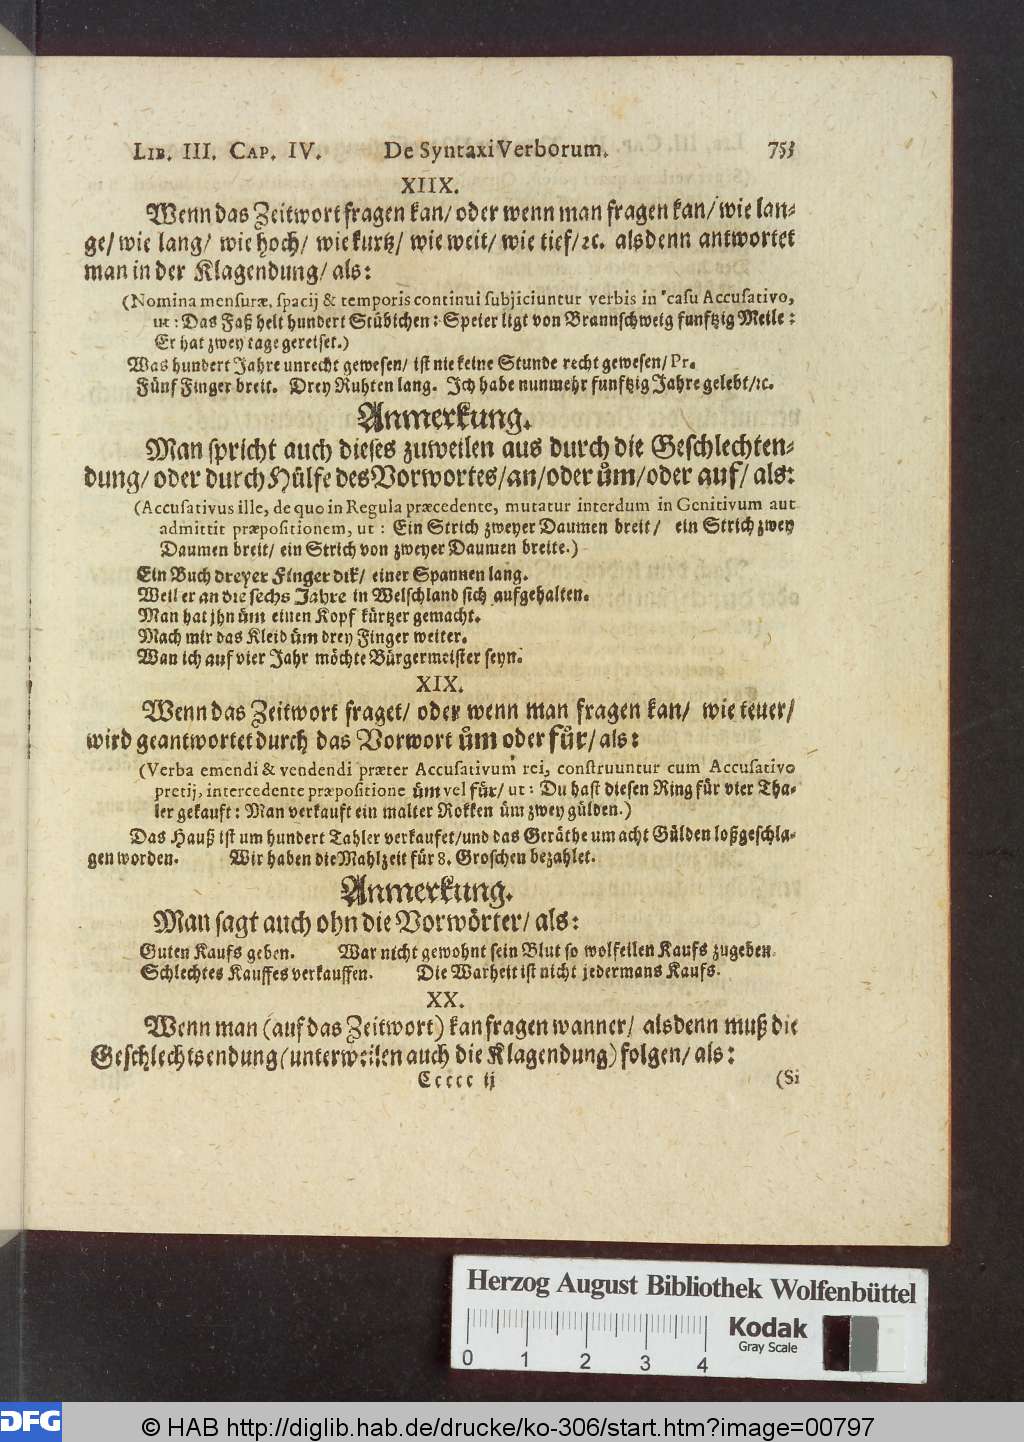 LIB. III. CAP. IV. De Syntaxi Verborum. 753
XIIX.
Wenn das Zeitwort fragen kan/ oder wenn man fragen kan/ wie lan⸗
ge/ wie lang/ wie hoch/ wie kurtz/ wie weit/ wie tief/ ꝛc. alsdenn antwortet
man in der Klagendung/ als:
(Nomina mensuræ, spacij & temporis continui subjiciuntur verbis in casu Accusativo,
ut: Das Faß helt hundert Stübichen: Speier ligt von Braunschweig funftzig Meile:
Er hat zwey tage gereiset.)
Was hundert Jahre unrecht gewesen/ ist nie keine Stunde recht gewesen/ Pr.
Fünf Finger breit. Drey Ruhten lang. Ich habe nunmehr funftzig Jahre gelebt/ ꝛc.
Anmerkung.
Man spricht auch dieses zuweilen aus durch die Geschlechten⸗
dung/ oder durch Hülfe des Vorwortes/ an/ oder üm/ oder auf/ als:
(Accusativus ille, de quo in Regula præcedente, mutatur interdum in Genitivum aut
admittit præpositionem, ut: Ein Strich zweyer Daumen breit/ ein Strich zwey
Daumen breit/ ein Strich von zweyer Daumen breite.)
Ein Buch dreyer Finger dik/ einer Spannen lang.
Weil er an die sechs Jahre in Welschland sich aufgehalten.
Man hat jhn üm einen Kopf kürtzer gemacht.
Mach mir das Kleid üm drey Finger weiter.
Wan ich auf vier Jahr möchte Bürgermeister seyn.
XIX.
Wenn das Zeitwort fraget/ oder wenn man fragen kan/ wie teuer/
wird geantwortet durch das Vorwort üm oder für/ als:
(Verba emendi & vendendi præter Accusativum rei, construuntur cum Accusativo
pretij, intercedente præpositione üm vel für/ ut: Du hast diesen Ring für vier Tha⸗
ler gekauft: Man verkauft ein malter Rokken üm zwey gülden.)
Das Hauß ist um hundert Tahler verkaufet/ und das Geräthe um acht Gülden loßgeschla⸗
gen worden. Wir haben die Mahlzeit für 8. Groschen bezahlet.
Anmerkung.
Man sagt auch ohn die Vorwörter/ als:
Guten Kaufs geben. War nicht gewohnt sein Blut so wolfeilen Kaufs zugeben.
Schlechtes Kauffes verkauffen. Die Warheit ist nicht jedermans Kaufs.
XX.
Wenn man (auf das Zeitwort) kan fragen wanner/ alsdenn muß die
Geschlechtsendung (unterweilen auch die Klagendung) folgen/ als:
Ccccc ij (Si
Herzog August Bibliothek Wolfenbüttel
0 1 2 3 4
Kodak
Gray Scale
DFG
© HAB http://diglib.hab.de/drucke/ko-306/start.htm?image=00797